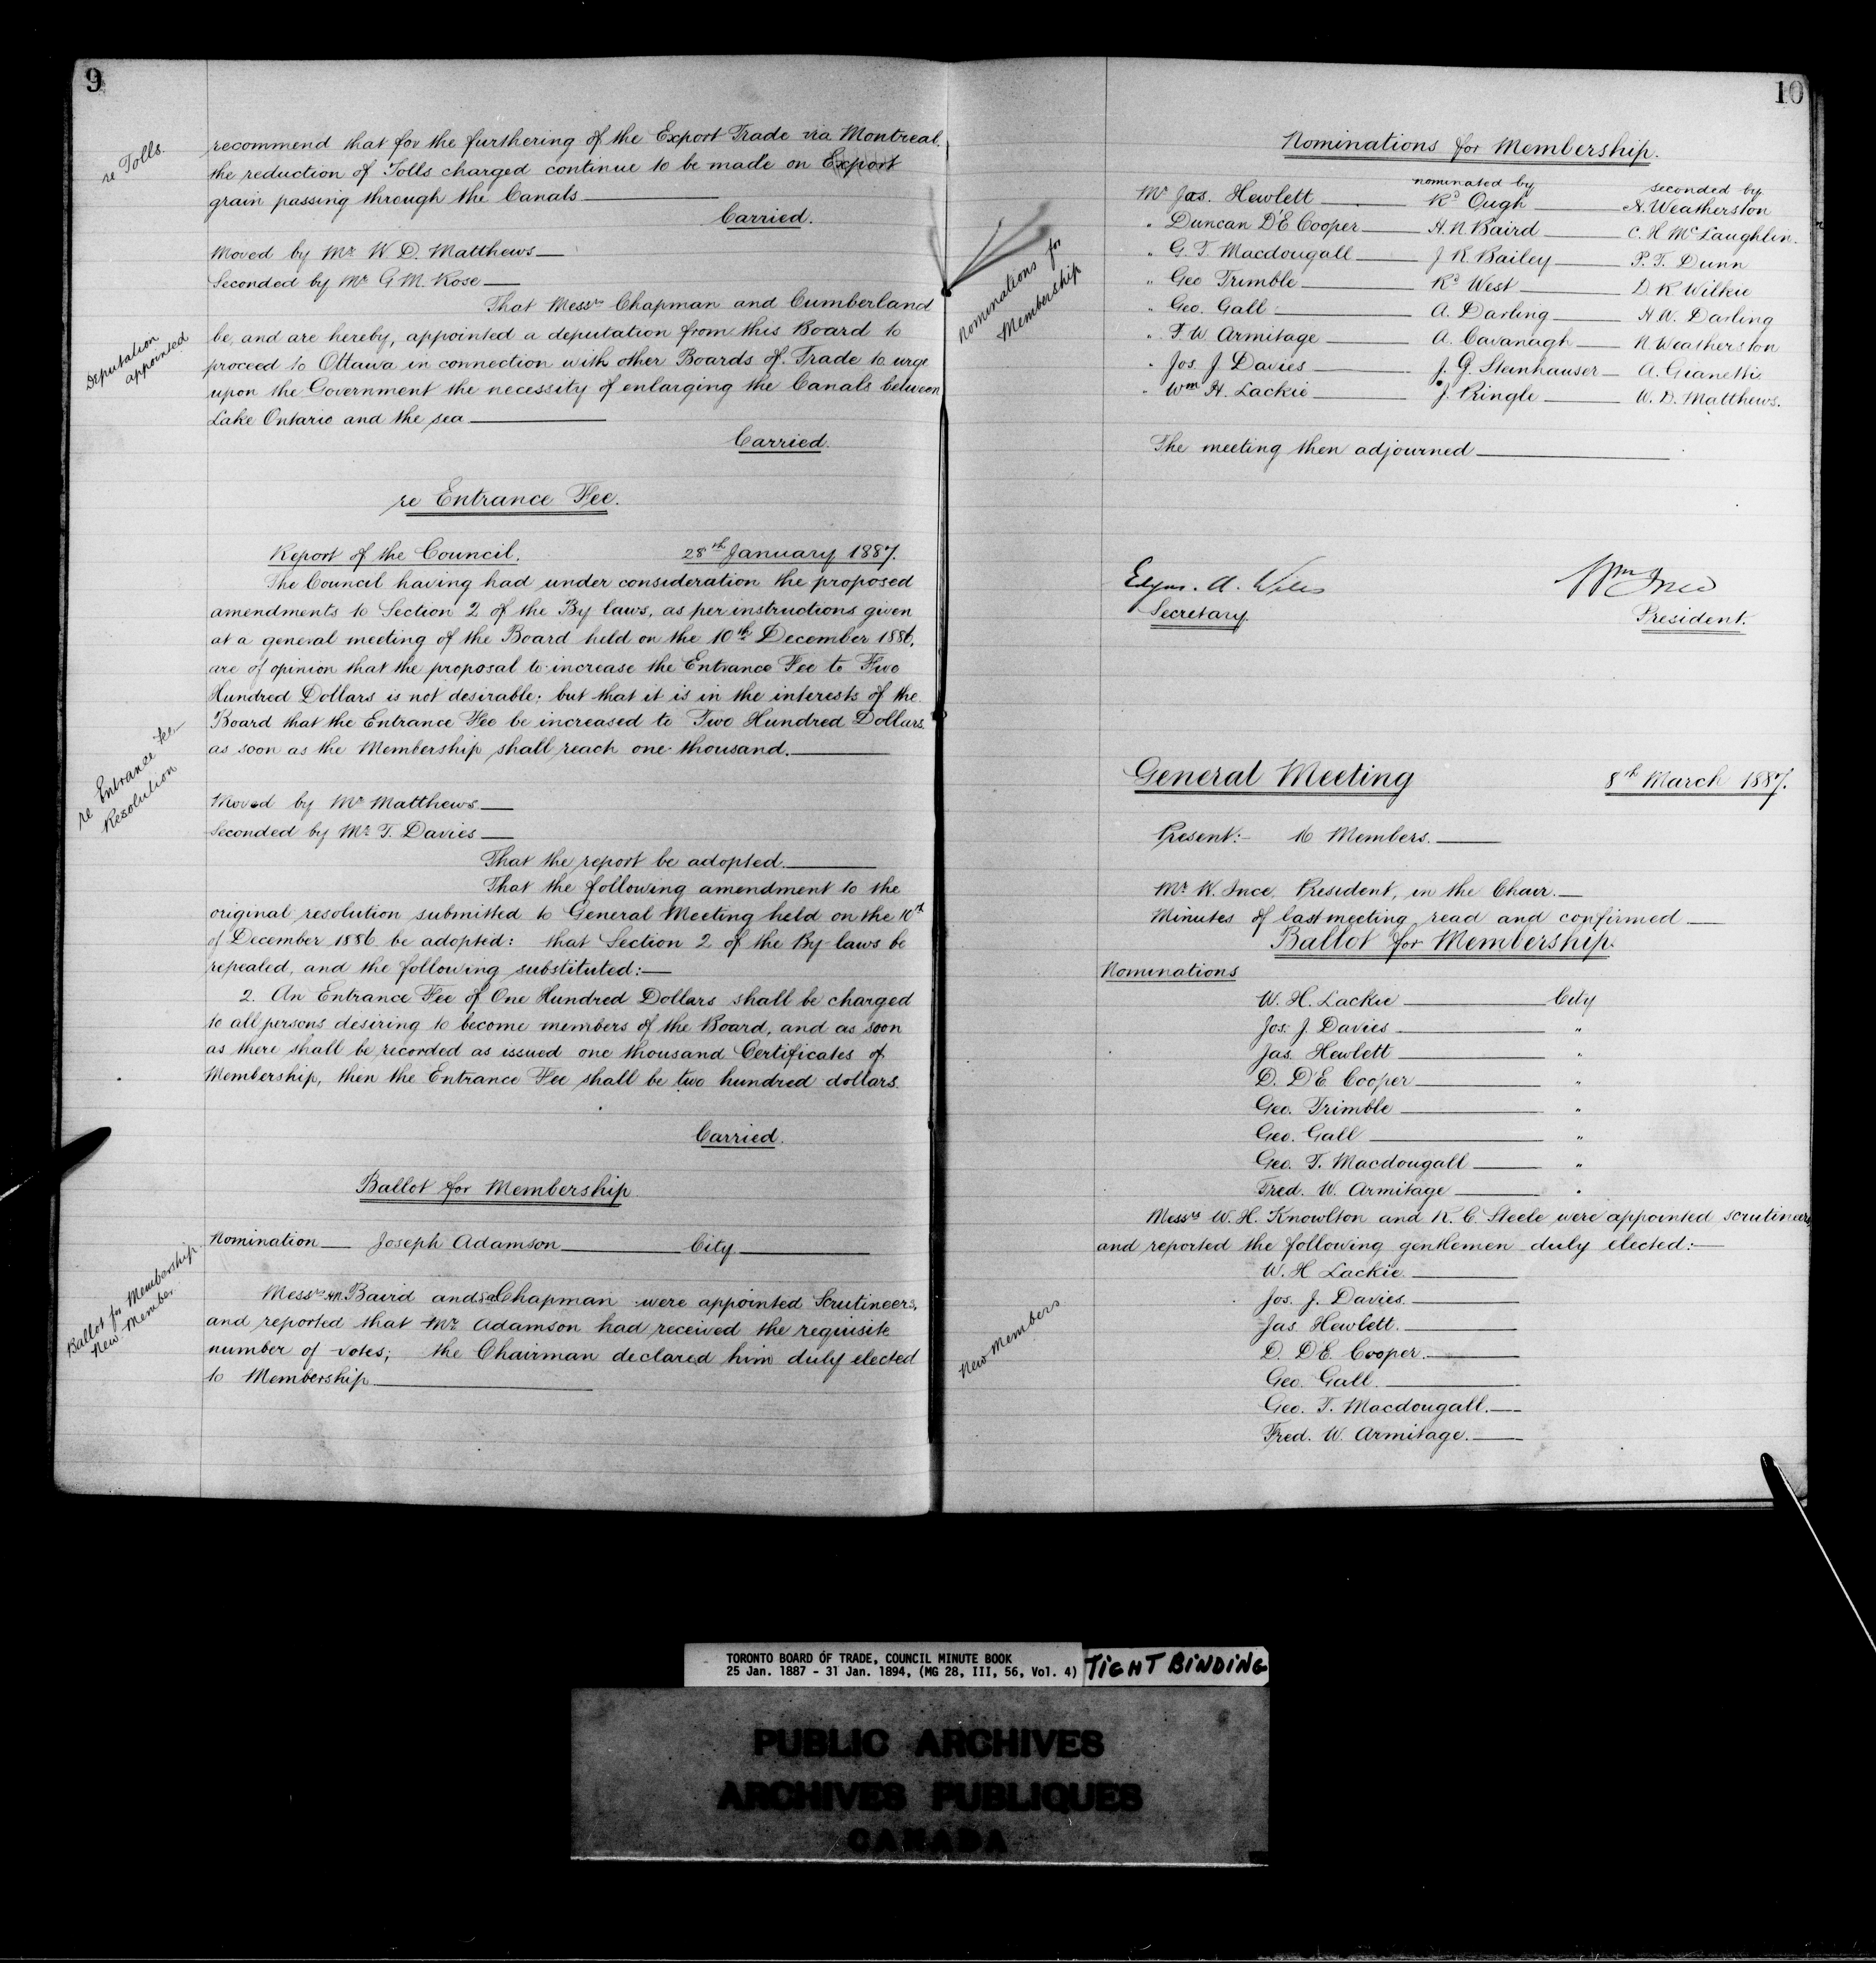 9
re Tolls.
recommend that for the furthering of the Export Trade via Montreal.
the reduction of Tolls charged continue to be made on Export
grain passing through the Canals
Carried.
Moved by Mr W. D. Matthews
Seconded by Mr G. M. Rose
Deputation
appointed
That Messrs Chapman and Cumberland
be, and are hereby, appointed a deputation from this Board to
proceed to Ottawa in connection with other Boards of Trade to urge
upon the Government the necessity of enlarging the Canals between
Lake Ontario and the sea
Carried.
re Entrance Fee.
Report of the Council. 28th January 1887.
The Council having had under consideration the proposed
amendments to Section 2 of the By laws, as per instructions given
at a general meeting of the Board held on the 10th December 1886,
are of opinion that the proposal to increase the Entrance Fee to Five
Hundred Dollars is not desirable; but that it is in the interests of the
Board that the Entrance Fee be increased to Two Hundred Dollars
as soon as the Membership shall reach one thousand.
re Entrance Fee
Resolution
Moved by Mr Matthews
Seconded by Mr T. Davies
That the report be adopted.
That the following amendment to the
original resolution submitted to General Meeting held on the 10th
of December 1886 be adopted: that Section 2 of the By-laws be
repealed, and the following substituted:—
2. An Entrance Fee of One Hundred Dollars shall be charged
to all persons desiring to become members of the Board, and as soon
as there shall be recorded as issued one thousand Certificates of
Membership, then the Entrance Fee shall be two hundred dollars.
Carried.
Ballot for Membership
Nomination Joseph Adamson City
Ballot for Membership
New Member.
Messrs H.N. Baird and S.A. Chapman were appointed Scrutineers,
and reported that Mr Adamson had received the requisite
number of votes; the Chairman declared him duly elected
to Membership
10
Nominations for Membership.
Nominations for
Membership
nominated by seconded by
Mr Jas. Hewlett Rd Ough N. Weatherston
" Duncan D'E Cooper H. N. Baird C. H. McLaughlin.
" G. T. Macdougall J R Bailey P. T. Dunn
" Geo Trimble Rd West D. R Wilkie
" Geo. Gall A. Darling H. W. Darling
" F. W Armitage A. Cavanagh N Weatherston
" Jos. J. Davies J. G. Steinhauser A. Gianetti
" Wm H. Lackie J. Pringle W. D. Matthews.
The meeting then adjourned
Edgar. A. Wills Wm Ince
Secretary. President.
General Meeting 8th March 1887.
Present:- 16 Members.
Mr W. Ince President, in the Chair.
Minutes of last meeting read and confirmed
Ballot for Membership.
Nominations
W. H. Lackie City
Jos. J. Davies "
Jas. Hewlett "
D. D'E. Cooper "
Geo. Trimble "
Geo. Gall "
Geo. T. Macdougall "
Fred. W. Armitage "
Messrs W. H. Knowlton and R. C. Steele were appointed scrutineers
and reported the following gentlemen duly elected:—
New Members
W. H Lackie.
Jos. J. Davies.
Jas. Hewlett.
D. D'E. Cooper.
Geo. Gall.
Geo. T. Macdougall.
Fred. W. Armitage.
TORONTO BOARD OF TRADE, COUNCIL MINUTE BOOK
25 Jan. 1887 - 31 Jan. 1894, (MG 28, III, 56, Vol. 4)
TIGHT BINDING
PUBLIC ARCHIVES
ARCHIVES PUBLIQUES
CANADA